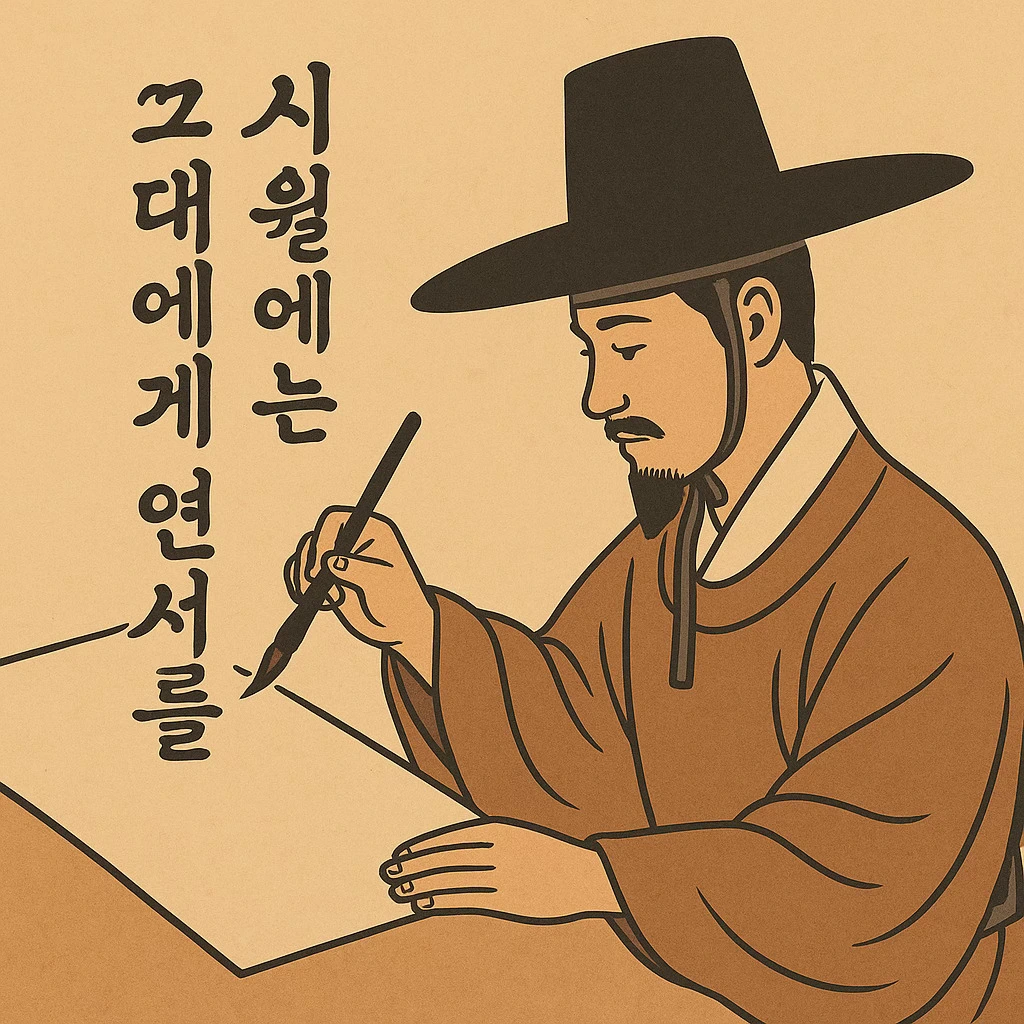 시월에는
그대에게 연서를